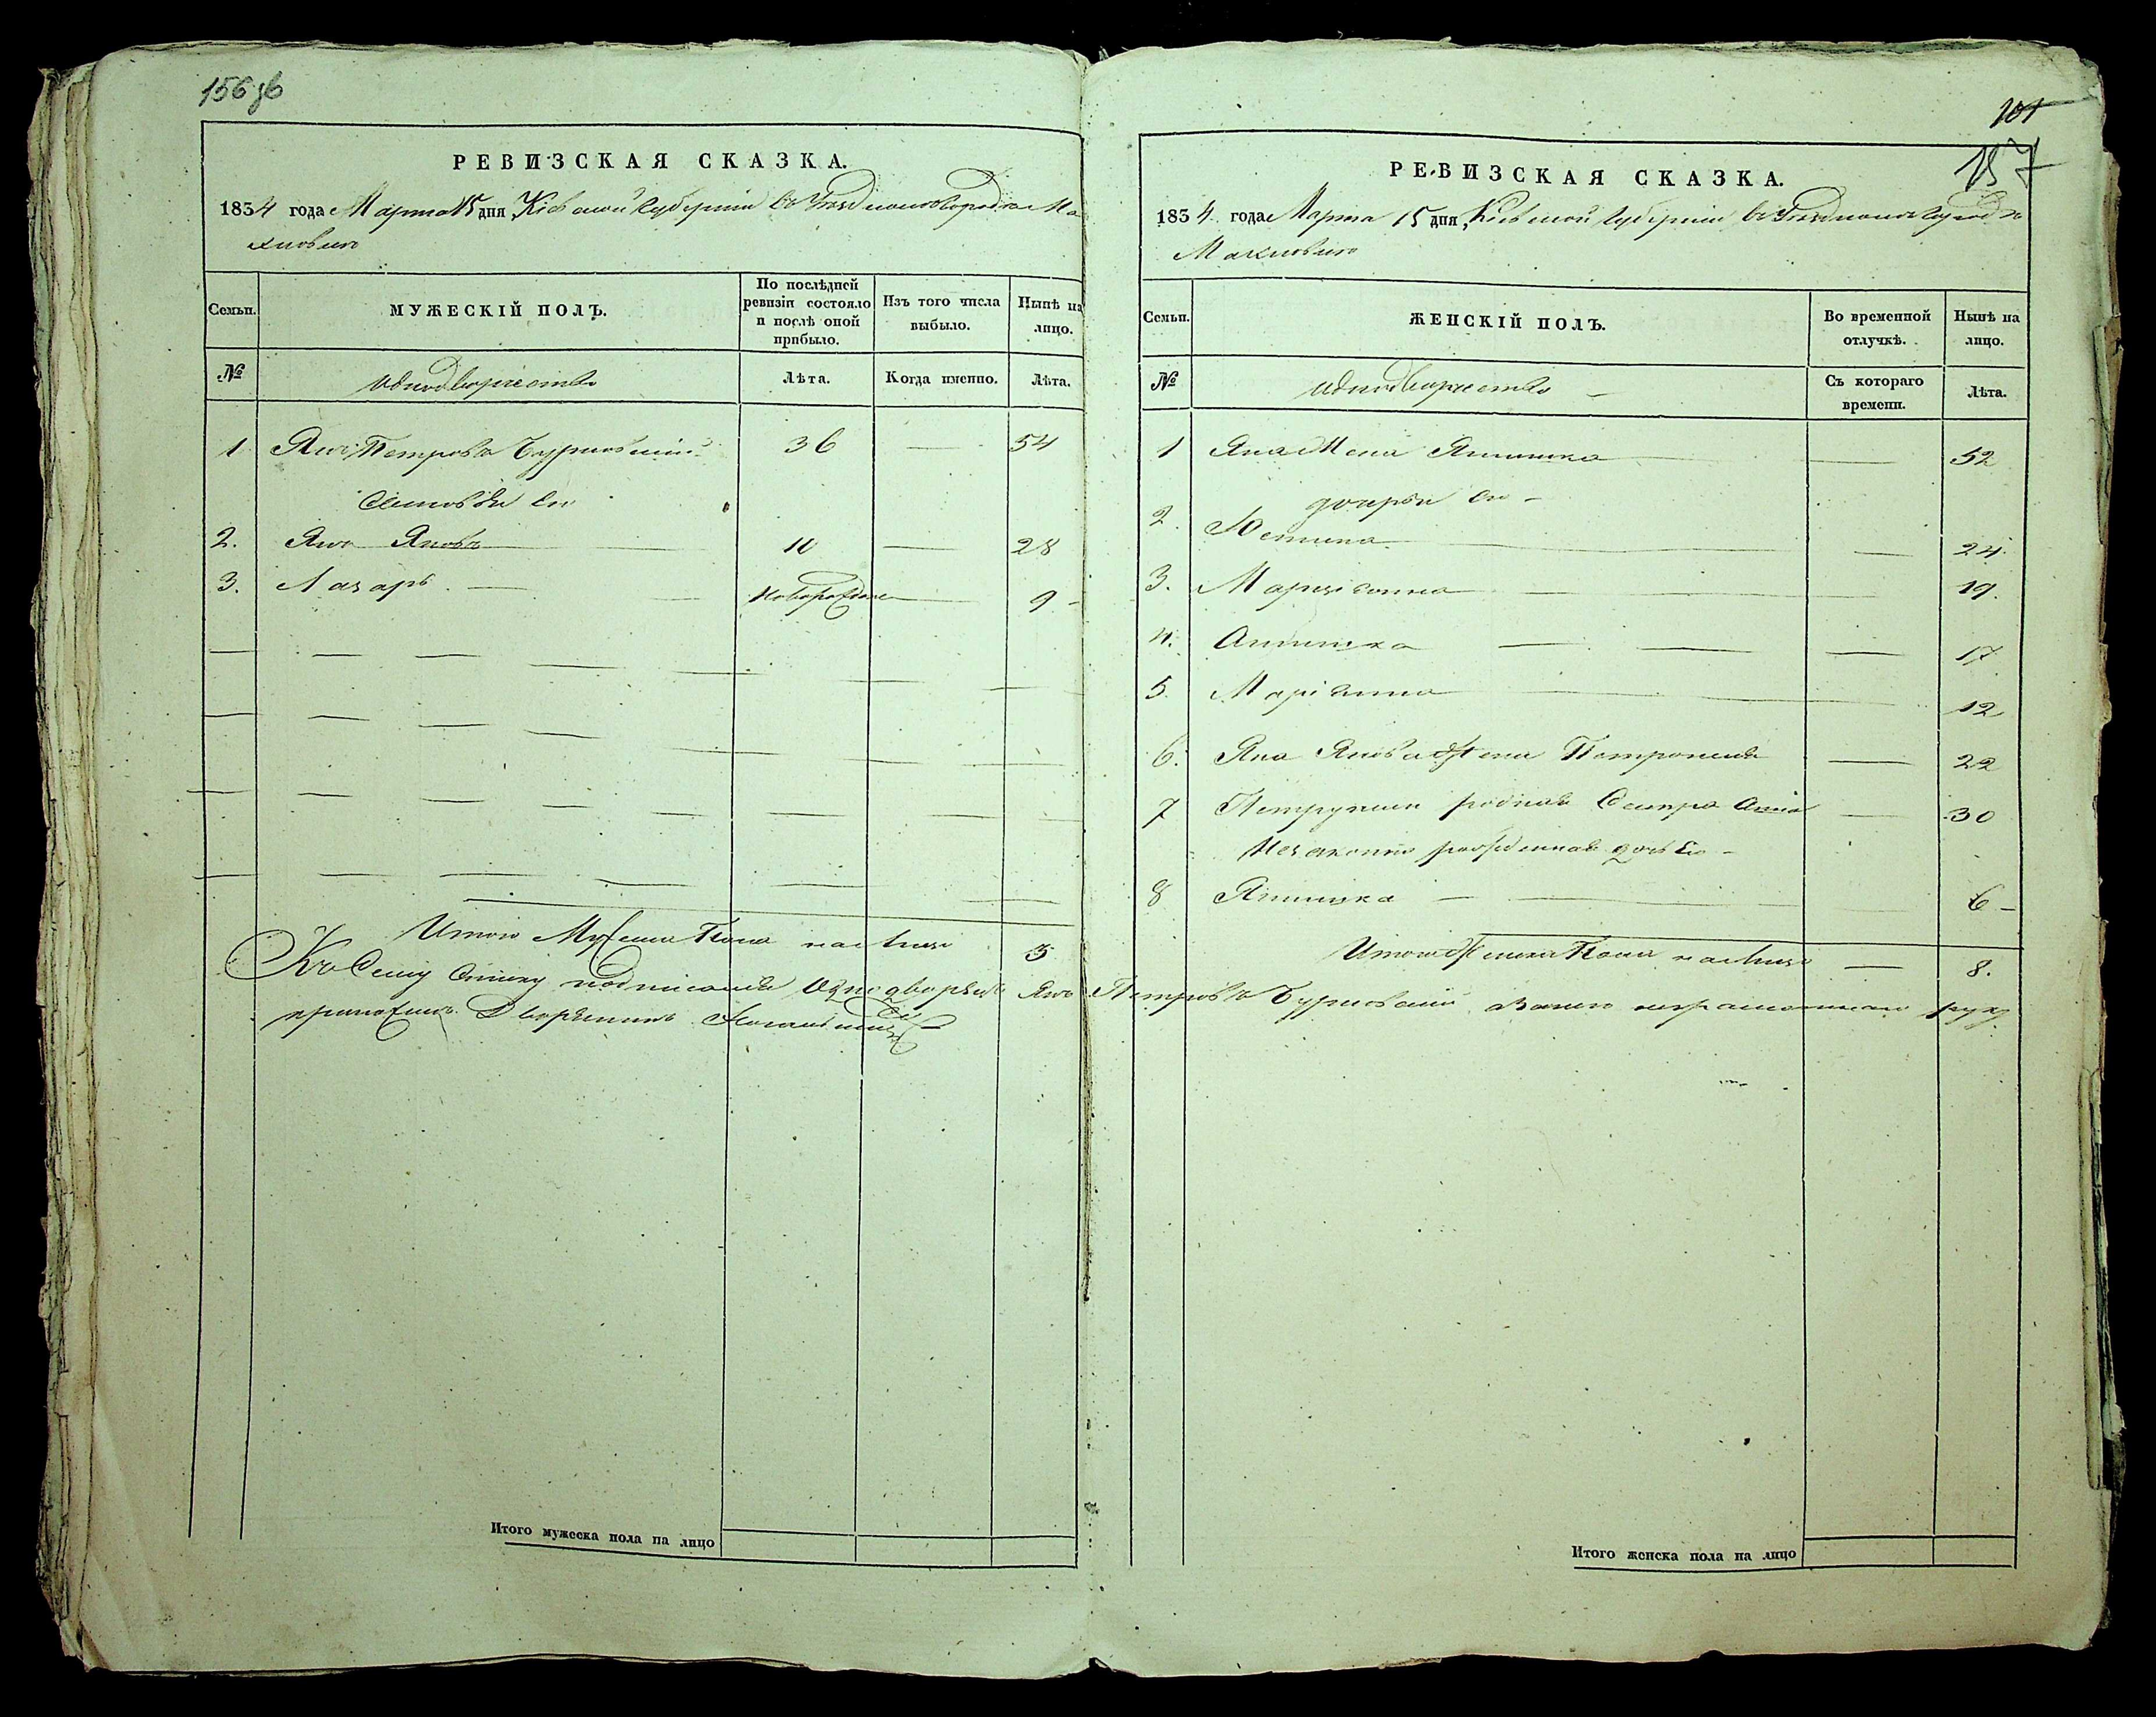 156 об
РЕВИЗСКАЯ СКАЗКА.
1834 года Марта 15 дня Кіевской Губерніи въ Уездномъ Городѣ Ма
хновкѣ
Семьи.
МУЖЕСКІЙ ПОЛЪ.
По послѣдней ревизіи состояло и послѣ оной прибыло.
Изъ того числа выбыло.
Нынѣ на лицо.
№
Однодворческтво
Лѣта.
Когда именно.
Лѣта.
1 Янъ Петровъ Бурковскій 36 — 54
Сыновья Его
2. Янъ Яковъ 10 — 28
3. Лазарь — Новорожден — 9
Итого Мужеска Пола на лицо 3
Къ Сему Списку подписался Однодворецъ Янъ Петровъ Бурковскій а вместо неграмотнаго руку
приложилъ Дворянинъ
Итого мужеска пола на лицо
101
157
РЕВИЗСКАЯ СКАЗКА.
1834 года Марта 15 дня, Кіевской Губерніи въ Уездномъ Городѣ
Махновкѣ
Семьи.
ЖЕНСКІЙ ПОЛЪ.
Во временной отлучкѣ.
Нынѣ на лицо.
№
Однодворческтво
Съ котораго времени.
Лѣта.
1 Яна Жена Яннишка — 52
дочери Его
2. Юстина — 24.
3. Марцианна 19.
4. Аннишка — 17
5. Маріанна 12
6. Яна Якова Жена Петронеля — 22
7 родная Сестра Анна — 30
Незаконно рожденная дочь Ея
8 Яннишка — 6
Итого Женска Пола на лицо — 8.
Итого женска пола на лицо